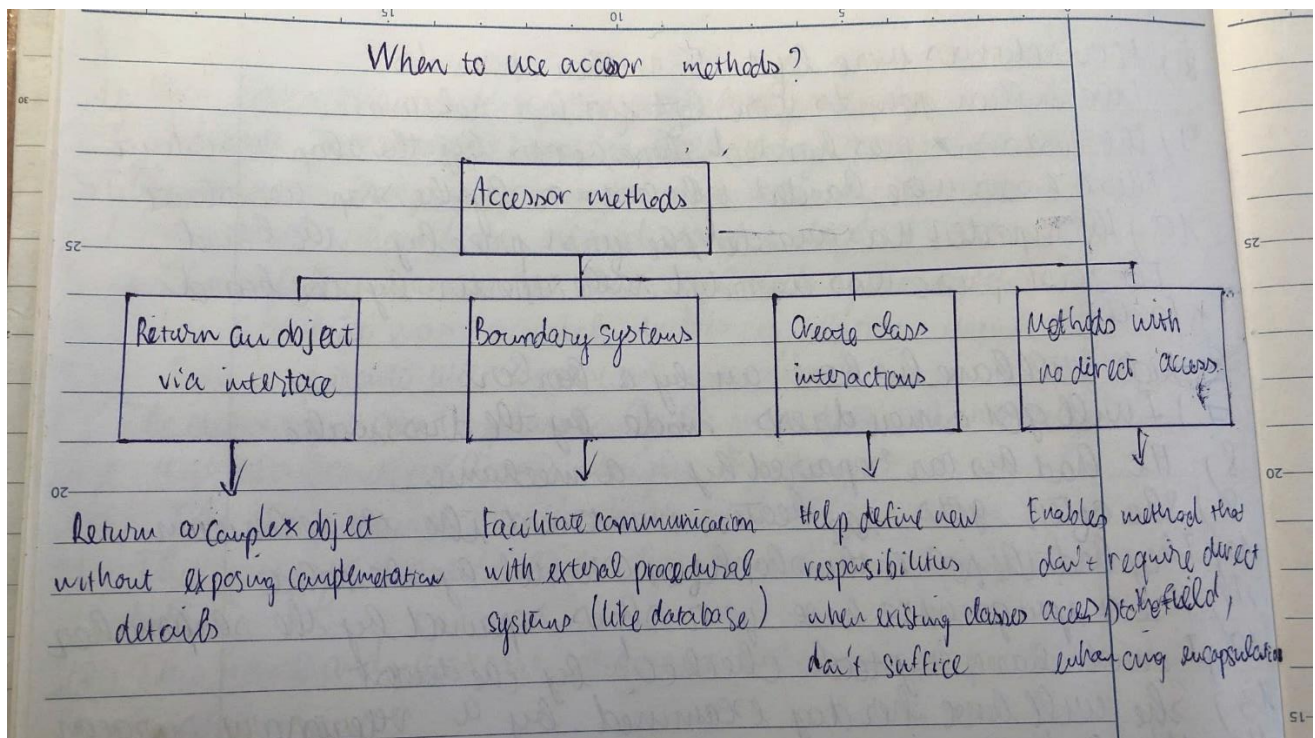 When to use accessor methods?
Accessor methods
Return an object
via interface
Boundary systems
Create class
interactions
Methods with
no direct access
Return a complex object
without exposing complemetation
details
Facilitate communication
with exteral procedural
systems (like database)
Help define new
responsibilities
when existing classes
don't suffice
Enables method that
don't require direct
access to the field,
enhancing encapsulation
15
10
5
0
30
25
25
20
20
15